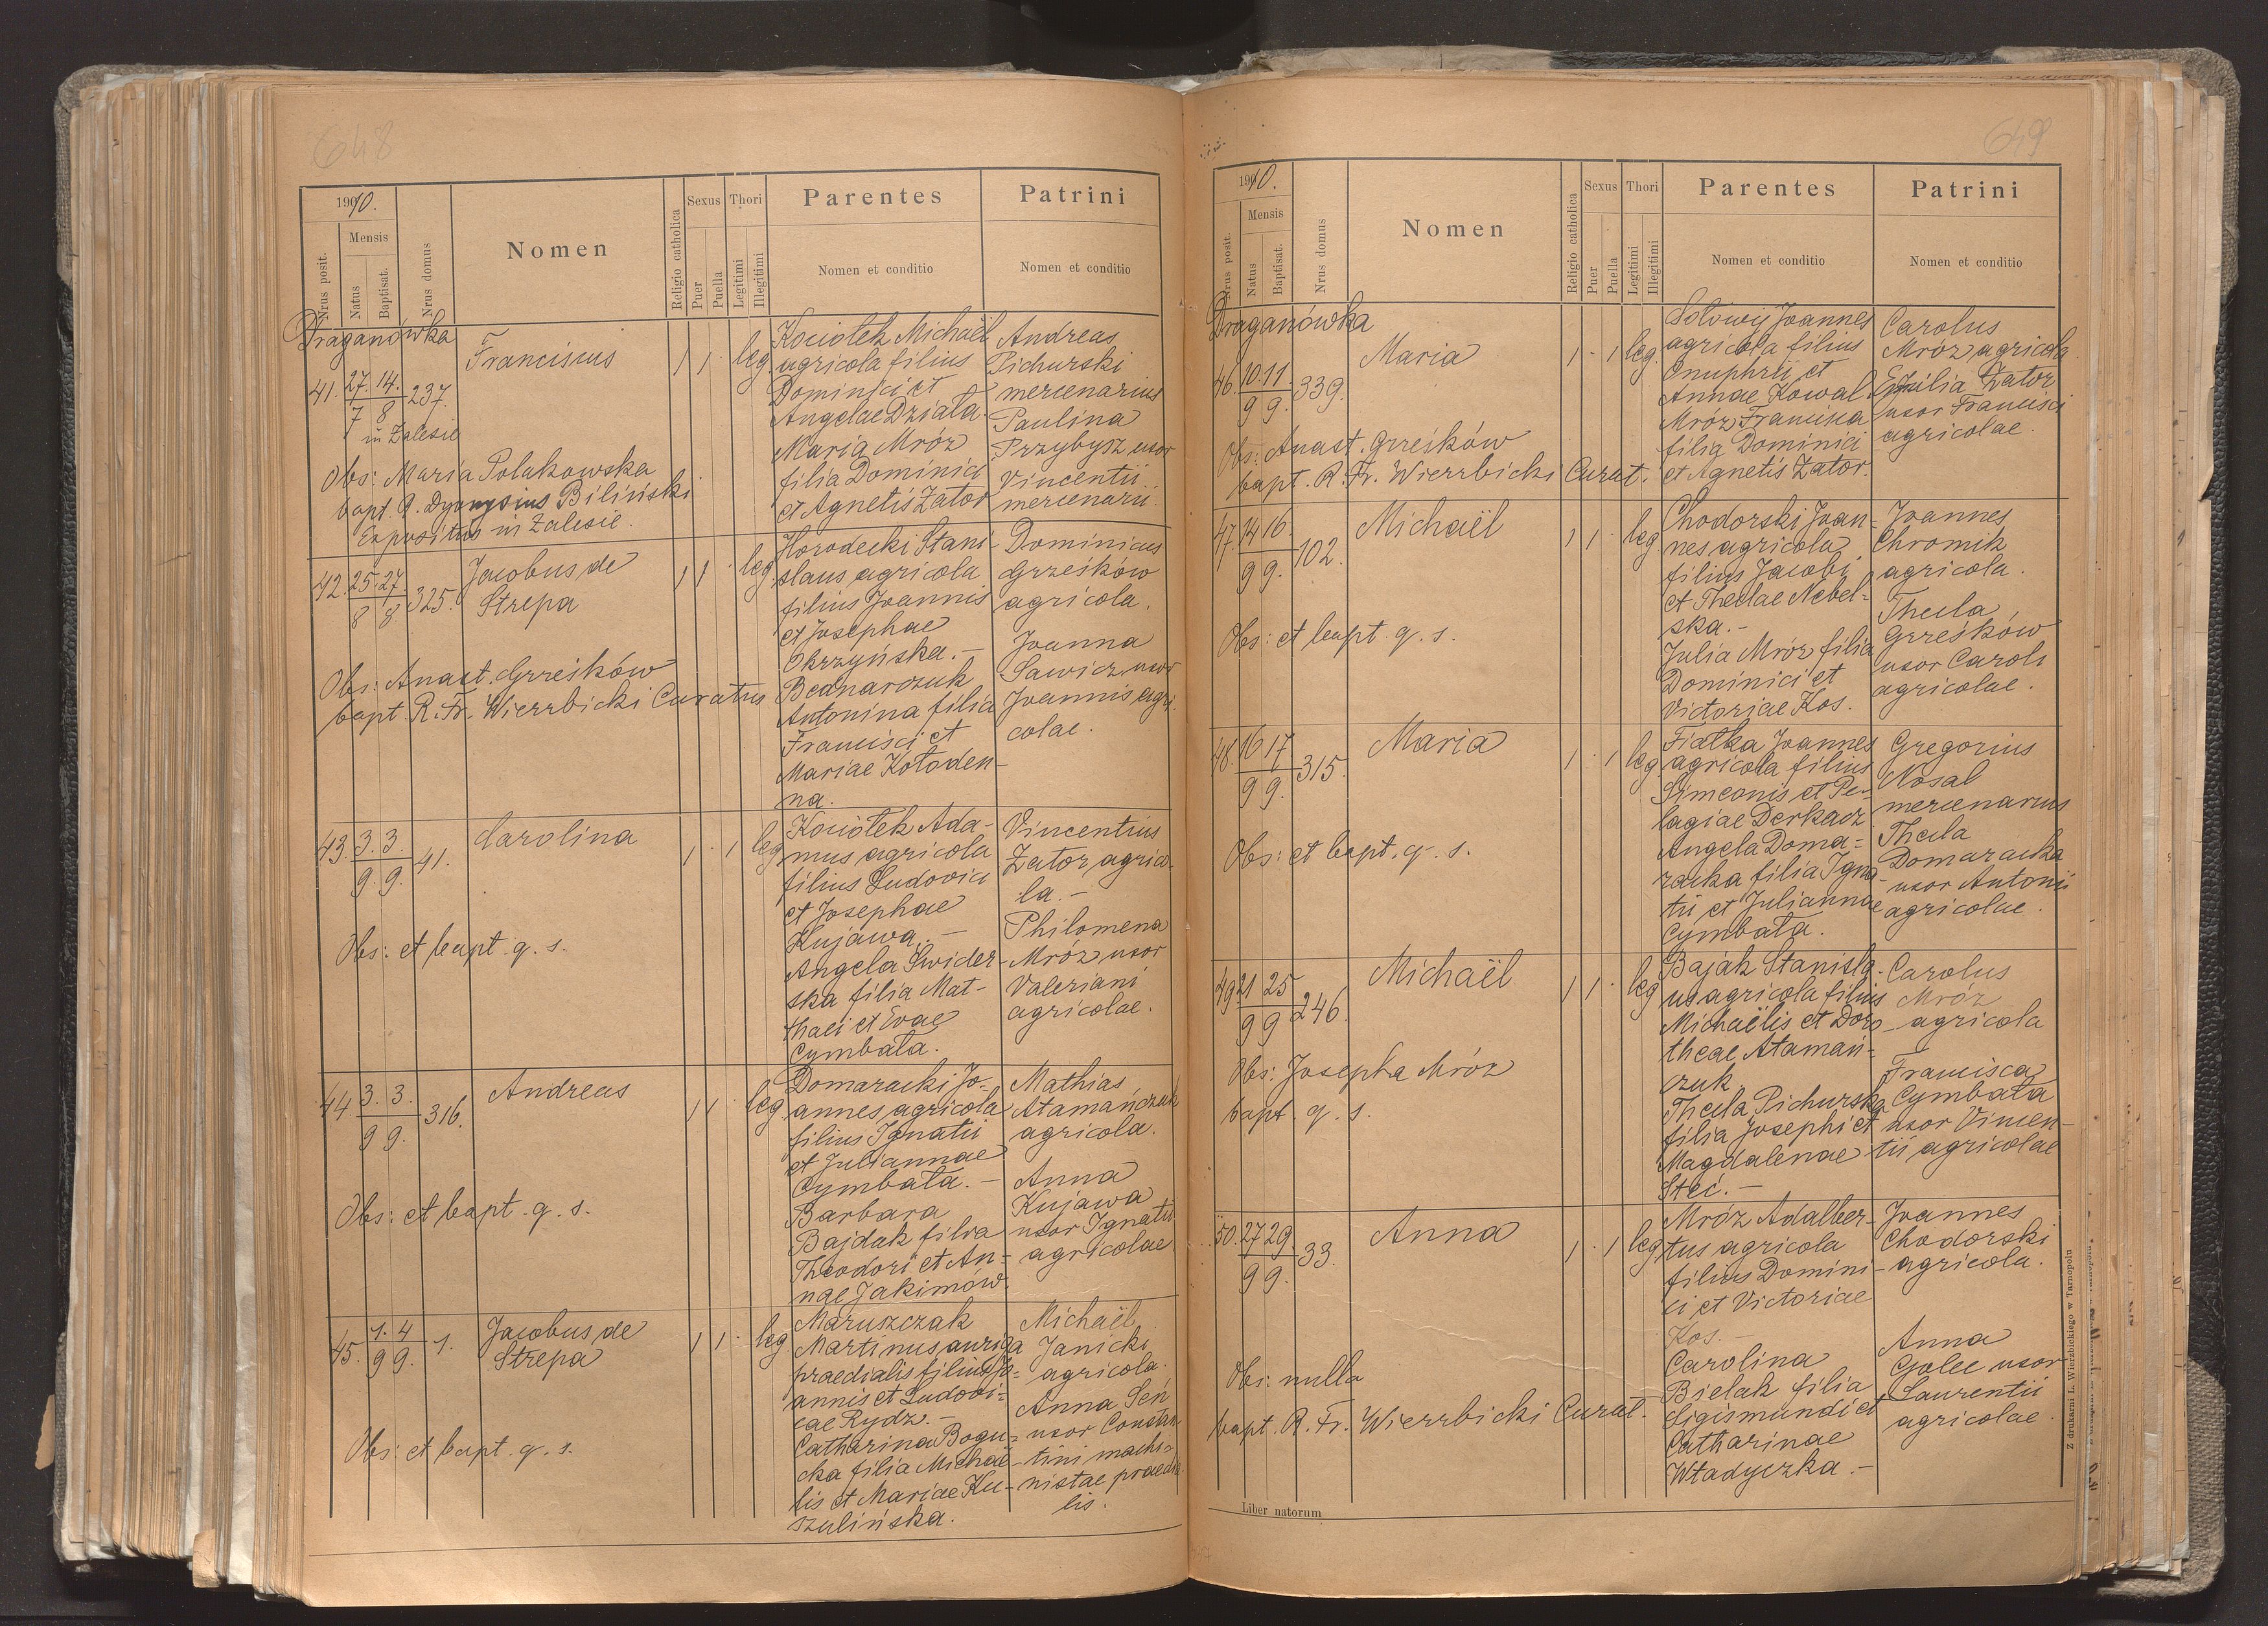 648
1910.
Nrus posit.
Mensis
Natus
Baptisat.
Nrus domus
Nomen
Religio catholica
Sexus
Puer
Puella
Thori
Legitimi
Illegitimi
Parentes
Nomen et conditio
Patrini
Nomen et conditio
Draganówka
41. 27/7 14./8 237.
in Zalesie
Franciscus
1 1 · leg
Kociołek Michaël
agricola filius
Dominici et
Angelae Działa.
Maria Mróz
filia Dominici
et Agnetis Zator
Andreas
Pichurski
mercenarius
Paulina
Przybysz uxor
Vincentii
mercenarii.
Obs: Maria Polakowska
bapt. R. Dyonysius Biliński
Expositus in Zalesie.
42. 25/8 27/8 325.
Jacobus de
Strepa
1 1 · leg
Horodecki Stani-
slaus agricola
filius Joannis
et Josephae
Okrzyńska. —
Bednarczuk
Antonina filia
Francisci et
Mariae Kołoden-
na.
Dominicus
Grzeŝków
agricola.
Joanna
Sawicz uxor
Joannis agri-
colae.
Obs: Anast. Grześków
bapt. R. Fr. Wierzbicki Curatus
43. 3./9. 3./9. 41.
Carolina
1 · 1 leg
Kociołek Ada-
mus agricola
filius Ludovici
et Josephae
Kujawa. —
Angela Świder-
ska filia Mat-
thaei et Evae
Cymbała.
Vincentius
Zator agrico-
la. —
Philomena
Mróz uxor
Valeriani
agricolae.
Obs: et bapt. q. s.
44 3./9 3./9. 316.
Andreas
1 1 · leg.
Domaracki Jo-
annes agricola
filius Ignatii
et Juliannae
Cymbała. —
Barbara
Bajdak filia
Theodori et An-
nae Jakimów.
Mathias
Atamańczuk
agricola.
Anna
Kujawa
uxor Ignatii
agricolae
Obs: et bapt. q. s.
45. 1./9 4/9. 1.
Jacobus de
Strepa
1 1 · leg
Maruszczak
Martinus auriga
praedialis filius Jo-
annis et Ludovi-
cae Rydz. —
Catharina Bogu-
cka filia Michaë-
lis et Mariae Ku-
szulińska.
Michaël
Janicki
agricola.
Anna Seń
uxor Constan
tini machi-
nistae praedia
lis.
Obs: et bapt. q. s.
649
1910.
Nrus posit.
Mensis
Natus
Baptisat.
Nrus domus
Nomen
Religio catholica
Sexus
Puer
Puella
Thori
Legitimi
Illegitimi
Parentes
Nomen et conditio
Patrini
Nomen et conditio
Draganówka
46. 10/9 11/9. 339.
Maria
1 · 1 leg.
Sołowij Joannes
agricola filius
Onuphrii et
Annae Kowal.
Mróz Francisca
filia Dominici
et Agnetis Zator.
Carolus
Mróz agricola.
Emilia Zator
uxor Francisci
agricolae.
Obs: Anast. Grześków
bapt. R. Fr. Wierzbicki Curat.
47. 14/9 16./9. 102.
Michaël
1 1 · leg
Chodorski Joan-
nes agricola
filius Jacobi
et Theclae Nebel-
ska. —
Julia Mróz filia
Dominici et
Victoriae Kos.
Joannes
Chromik
agricola.
Thecla
Grześków
uxor Caroli
agricolae.
Obs: et bapt. q. s.
48. 16/9 17/9. 315.
Maria
1 · 1 leg
Fiałka Joannes
agricola filius
Simeonis et Pe-
lagiae Derkacz
Angela Doma-
racka filia Igna-
tii et Juliannae
Cymbała.
Gregorius
Nosal
mercenarius
Thecla
Domaracka
uxor Antonii
agricolae.
Obs: et bapt. q. s.
49 21/9 25/9 246.
Michaël
1 1 · leg
Bajak Stanisla-
us agricola filius
Michaëlis et Doro-
theae Atamań-
czuk
Thecla Pichurska
filia Josephi et
Magdalenae
Steć. —
Carolus
Mróz
agricola
Francisca
Cymbała
uxor Vincen-
tii agricolae
Obs: Josepha Mróz
bapt. q. s.
50. 27/9 29/9. 33.
Anna
1 · 1 leg.
Mróz Adalber-
tus agricola
filius Domini-
ci et Victoriae
Kos. —
Carolina
Bielak filia
Sigismundi et
Catharinae
Władyczka. —
Joannes
Chodorski
agricola.
Anna
Golec uxor
Laurentii
agricolae.
Obs: nulla
bapt. R. Fr. Wierzbicki Curat.
Liber natorum
Z drukarni L. Wierzbickiego w Tarnopolu